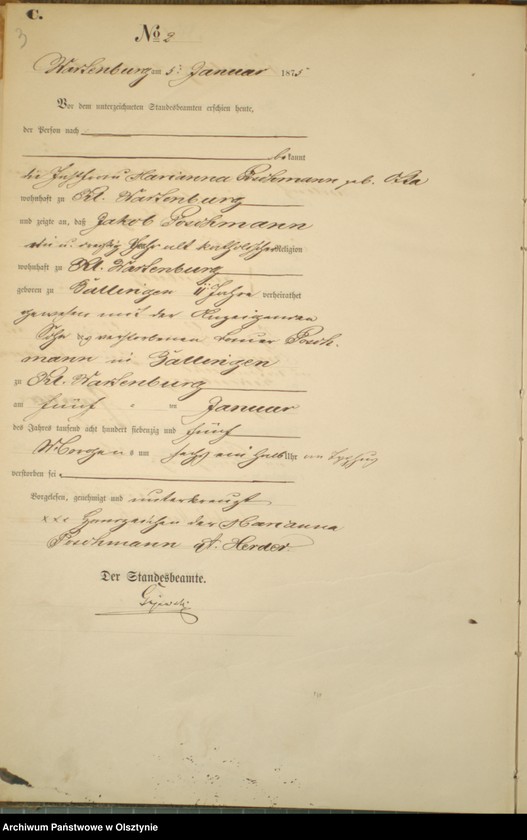 C.
3
No 2
Wartenburg am 5. Januar 1875
Vor dem unterzeichneten Standesbeamten erschien heute,
der Person nach
bekannt
die Marianna Poschmann geb.
wohnhaft zu Kl. Wartenburg
und zeigte an, daß Jakob Poschmann
Jahr alt katholischer Religion
wohnhaft zu Kl. Wartenburg
geboren zu Jahre verheirathet
gewesen mit der Anzeigenden
Sohn des verstorbenen Bauer Posch-
mann in
zu Kl. Wartenburg
am fünf ten Januar
des Jahres tausend acht hundert siebenzig und fünf
Morgens um sechs ein halb Uhr am Typhus
verstorben sei.
Vorgelesen, genehmigt und unterkreuzt
xxx Handzeichen der Marianna
Poschmann
Der Standesbeamte.
Archiwum Państwowe w Olsztynie